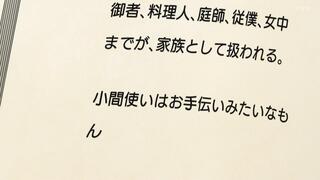 御者、料理人、庭師、従僕、女中
までが、家族として扱われる。
小間使いはお手伝いみたいなも
ん